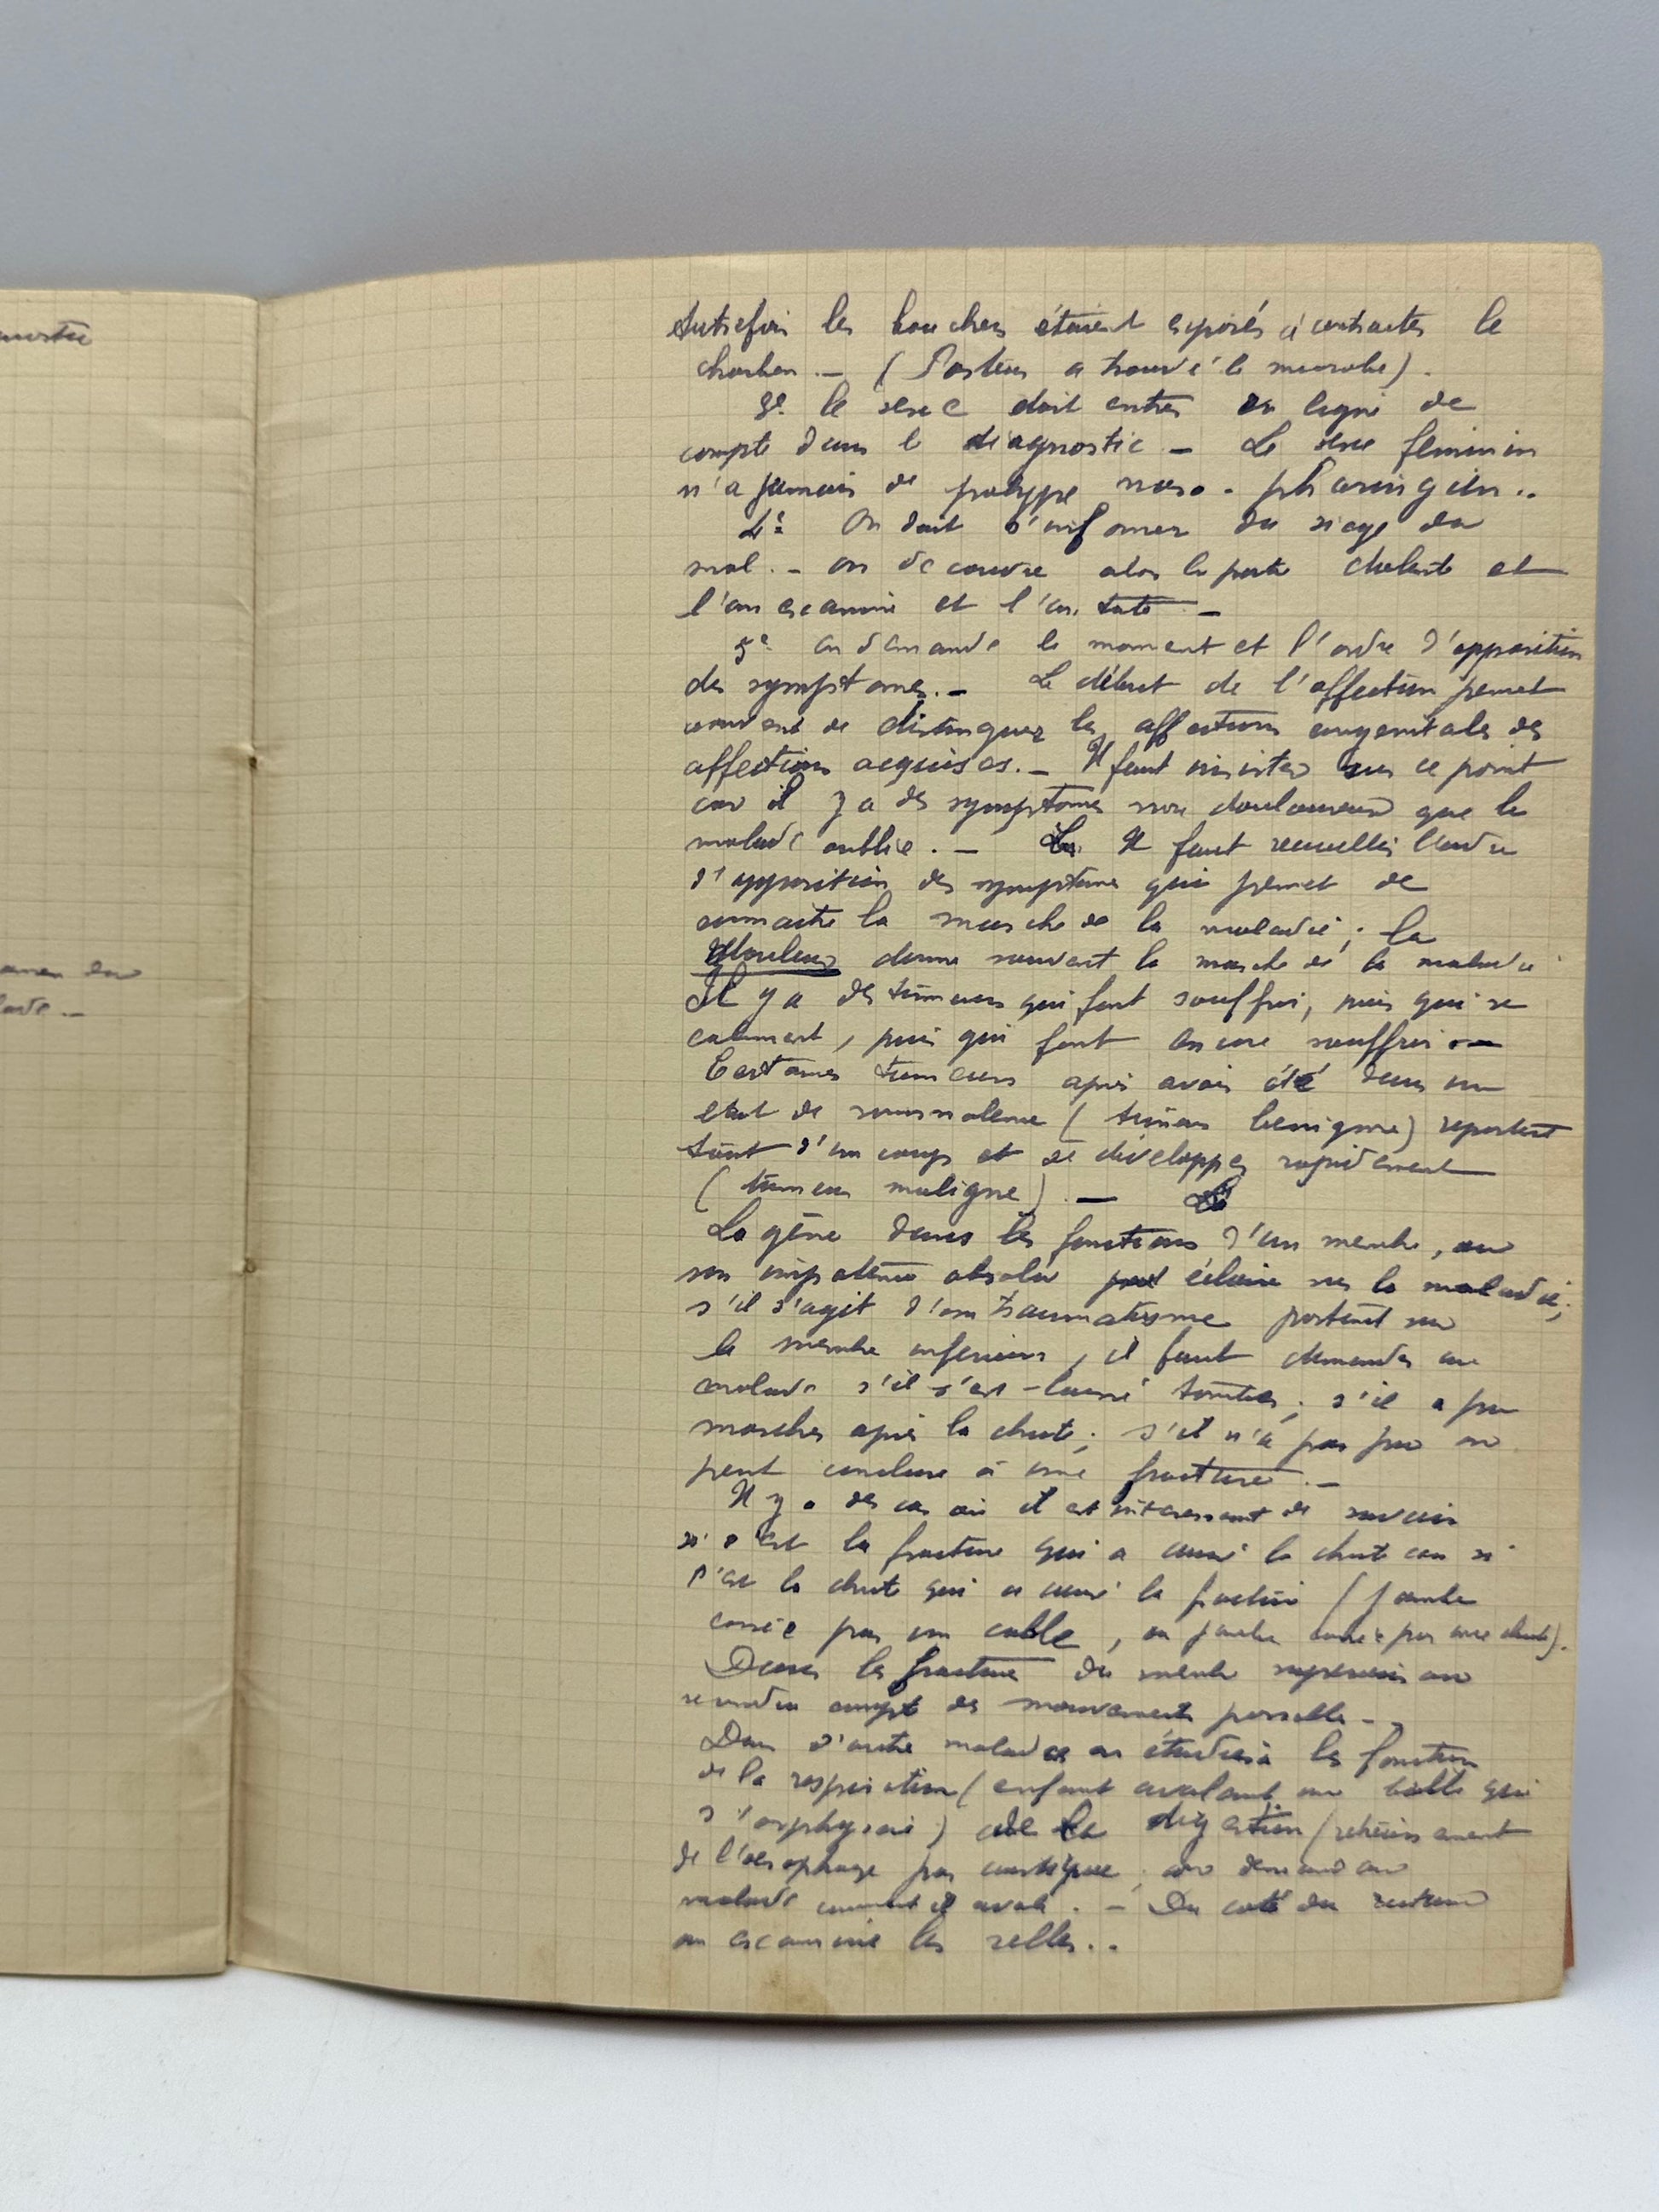 Autrefois les bouchers étaient exposés à contracter le
charbon. — (Pasteur a trouvé le microbe).
3e le sexe doit entrer en ligne de
compte dans le diagnostic — Le sexe féminin
n'a jamais de polype naso-pharingien..
4e On doit s'informer du siège du
mal. — on découvre alors la partie et
l'on examine et l'on tate. —
5e on demande le moment et l'ordre d'apparition
des symptomes. — Le début de l'affection permet
souvent de distinguer les affections congenitales des
affections acquises. — Il faut insister sur ce point
car il y a des symptomes non douloureux que le
malade oublie. — Il faut recueillir l'ordre
d'apparition des symptomes qui permet de
connaitre la marche de la maladie; la
douleur donne souvent la marche de la maladie
Il y a des tumeurs qui font souffrir, puis qui se
calment, puis qui font encore souffrir —
Certaines tumeurs après avoir été dans un
etat de somnolence (tumeur benigne) repartent
tout d'un coup et se développer rapidement
(tumeur maligne). —
La gêne dans les fonctions d'un membre, ou
son impotence absolue éclaire sur la maladie;
s'il s'agit d'un traumatisme portant sur
le membre inferieur, il faut demander au
malade s'il s'est laissé tomber; s'il a pu
marcher après la chute; s'il n'a pas pu on
peut conclure à une fracture. —
Il y a des cas où il est interessant de savoir
si c'est la fracture qui a causé la chute ou si
c'est la chute qui a causé la fracture (jambe
cassée par un cable, ou jambe cassée par une chute).
Dans les fractures du membre superieur on
se rendra compte des mouvements possibles —
Dans d'autres maladies on étudiera les fonctions
de la respiration (enfant avalant une bille qui
s'asphyxie) de la digestion (retrécissement
de l'oesophage par caustique, on demande au
malade comment il avale. — Du coté du rectum
on examine les selles..
amen du
lade. —